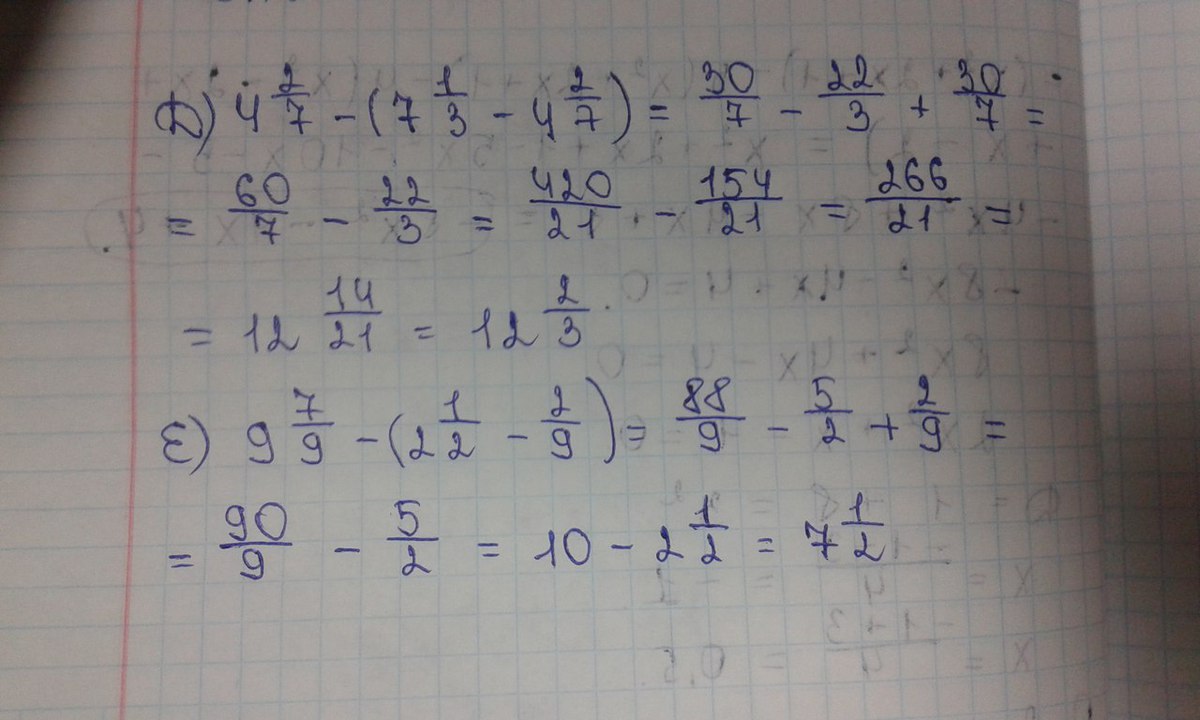 Д) 4 2/7 - (7 1/3 - 4 2/7) = 30/7 - 22/3 + 30/7 =
= 60/7 - 22/3 = 420/21 - 154/21 = 266/21 =
= 12 14/21 = 12 2/3
Е) 9 7/9 - (2 1/2 - 2/9) = 88/9 - 5/2 + 2/9 =
= 90/9 - 5/2 = 10 - 2 1/2 = 7 1/2